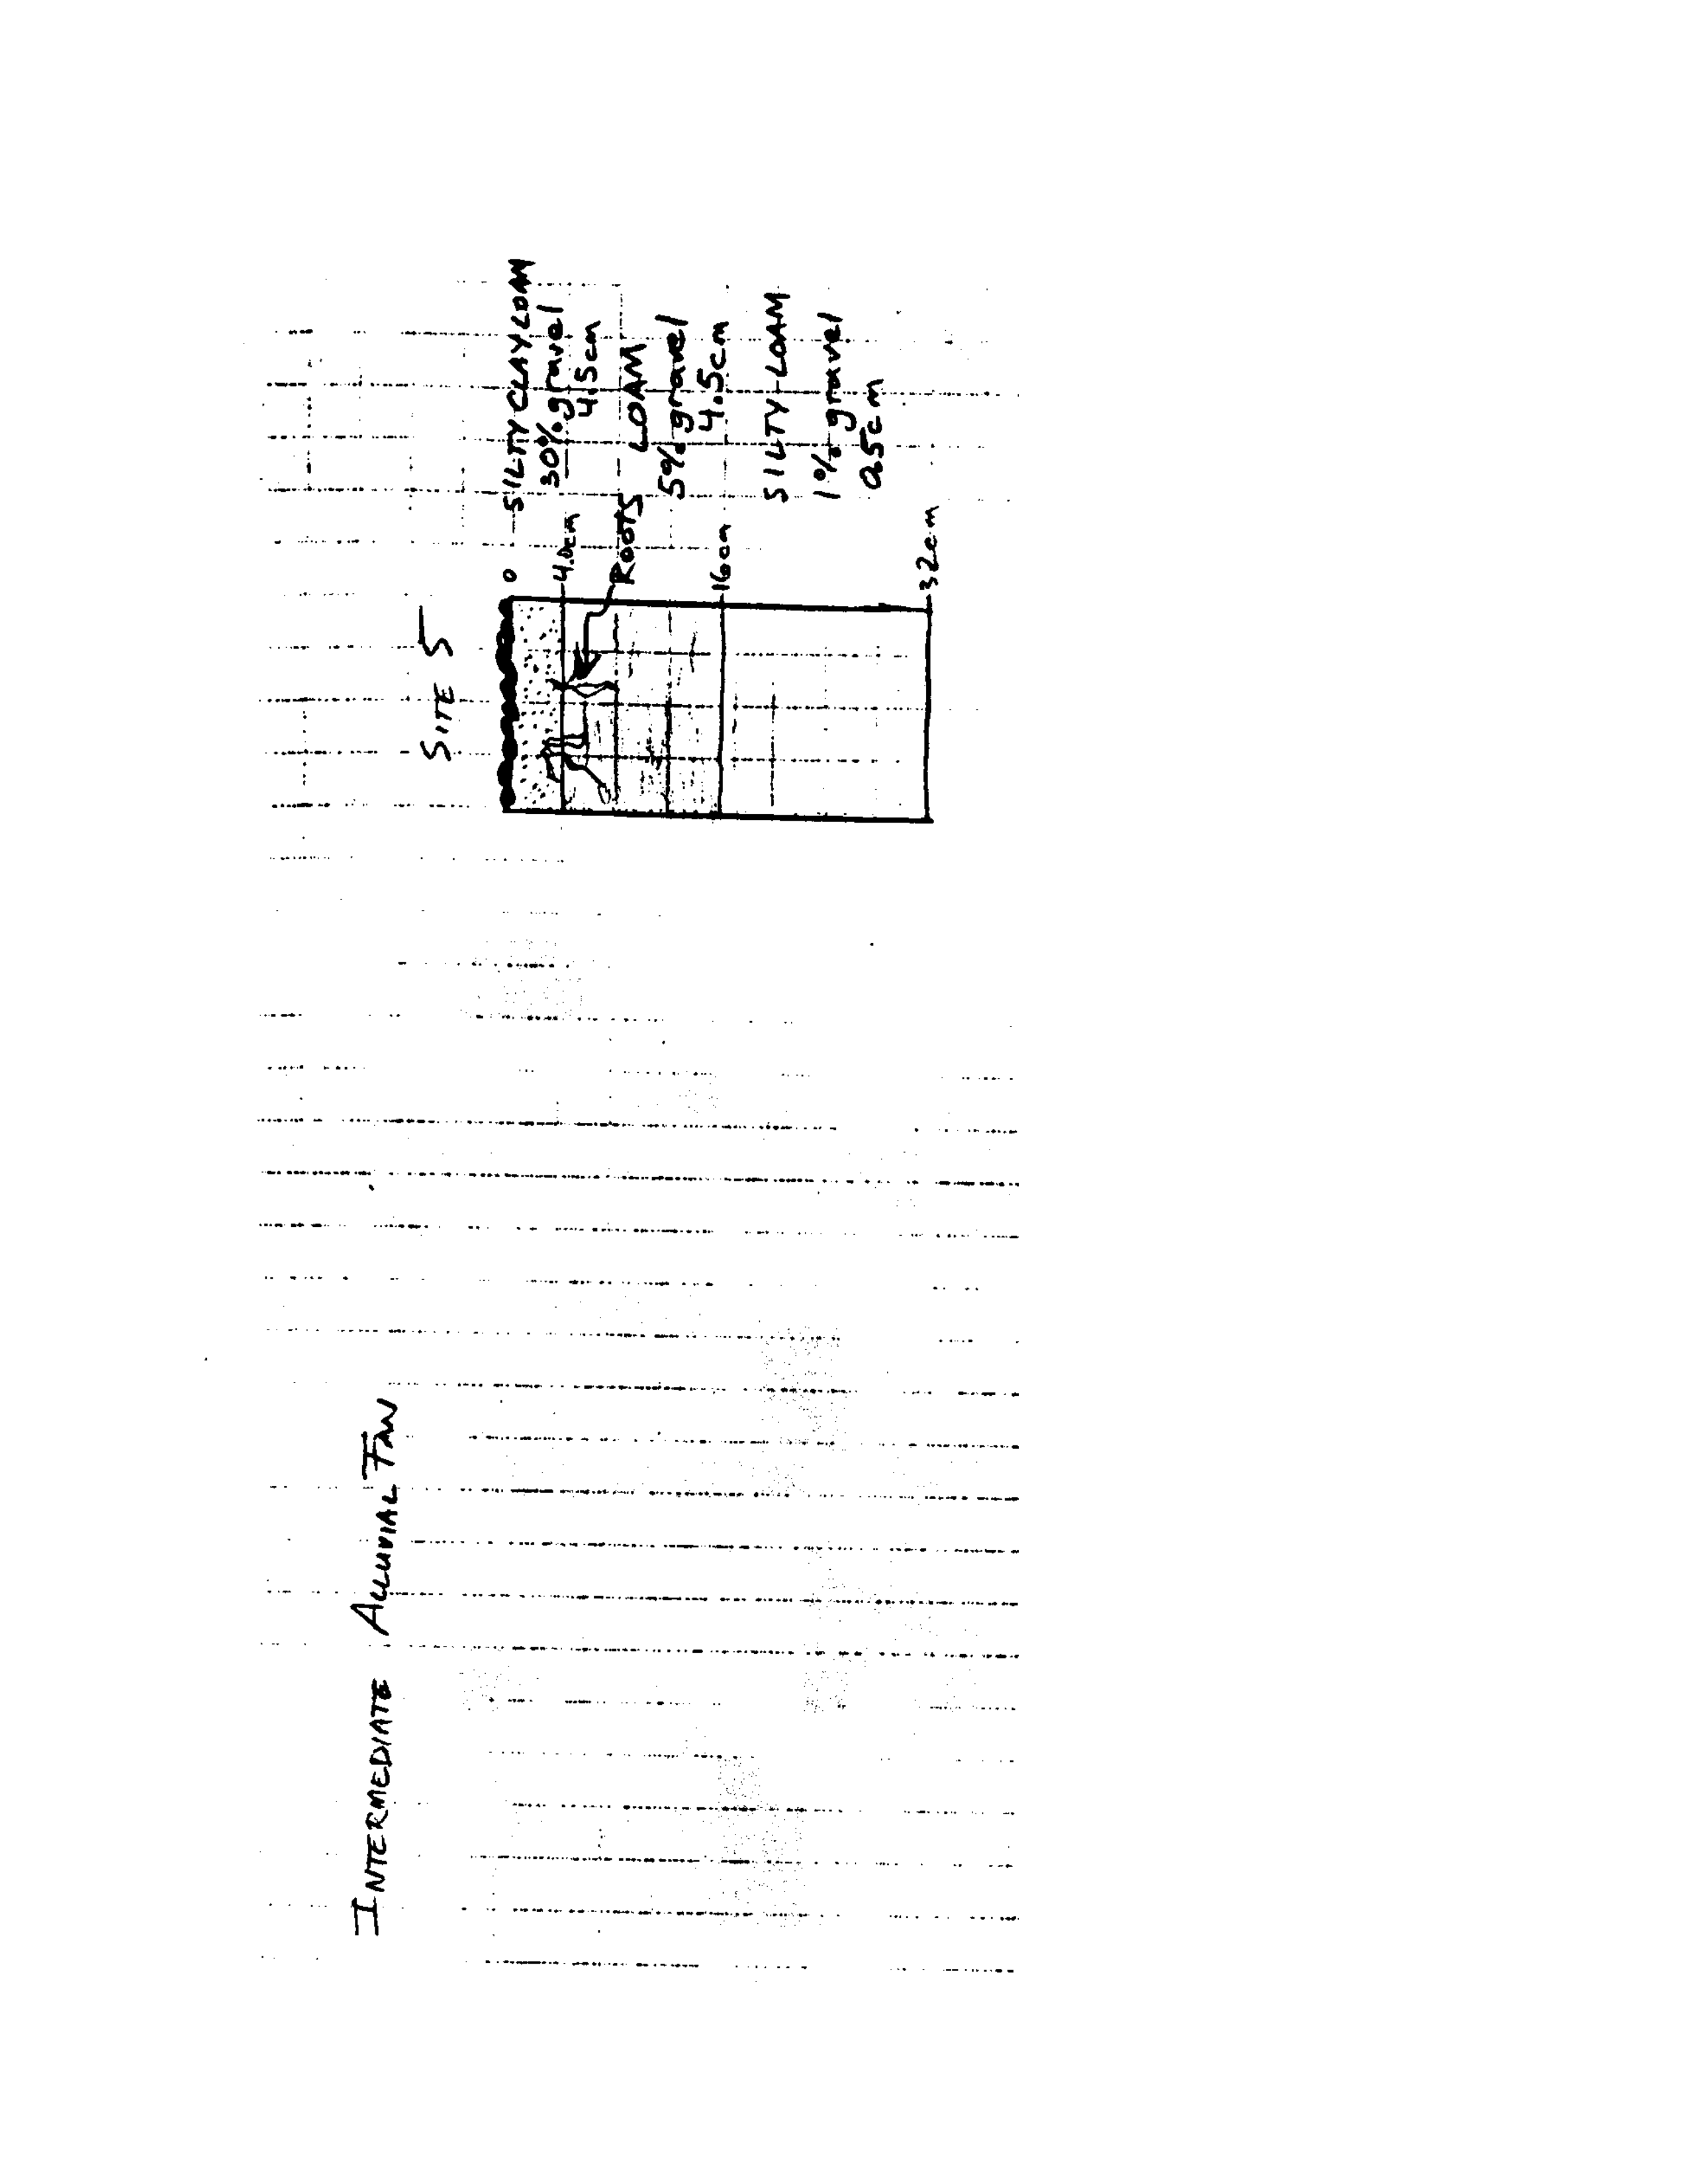 INTERMEDIATE ALLUVIAL FAN
SITE 5
0
SILTY CLAY LOAM
30% gravel
4.5cm
4.0cm
ROOTS
LOAM
5% gravel
4.5cm
16cm
SILTY LOAM
1% gravel
0.5cm
32cm